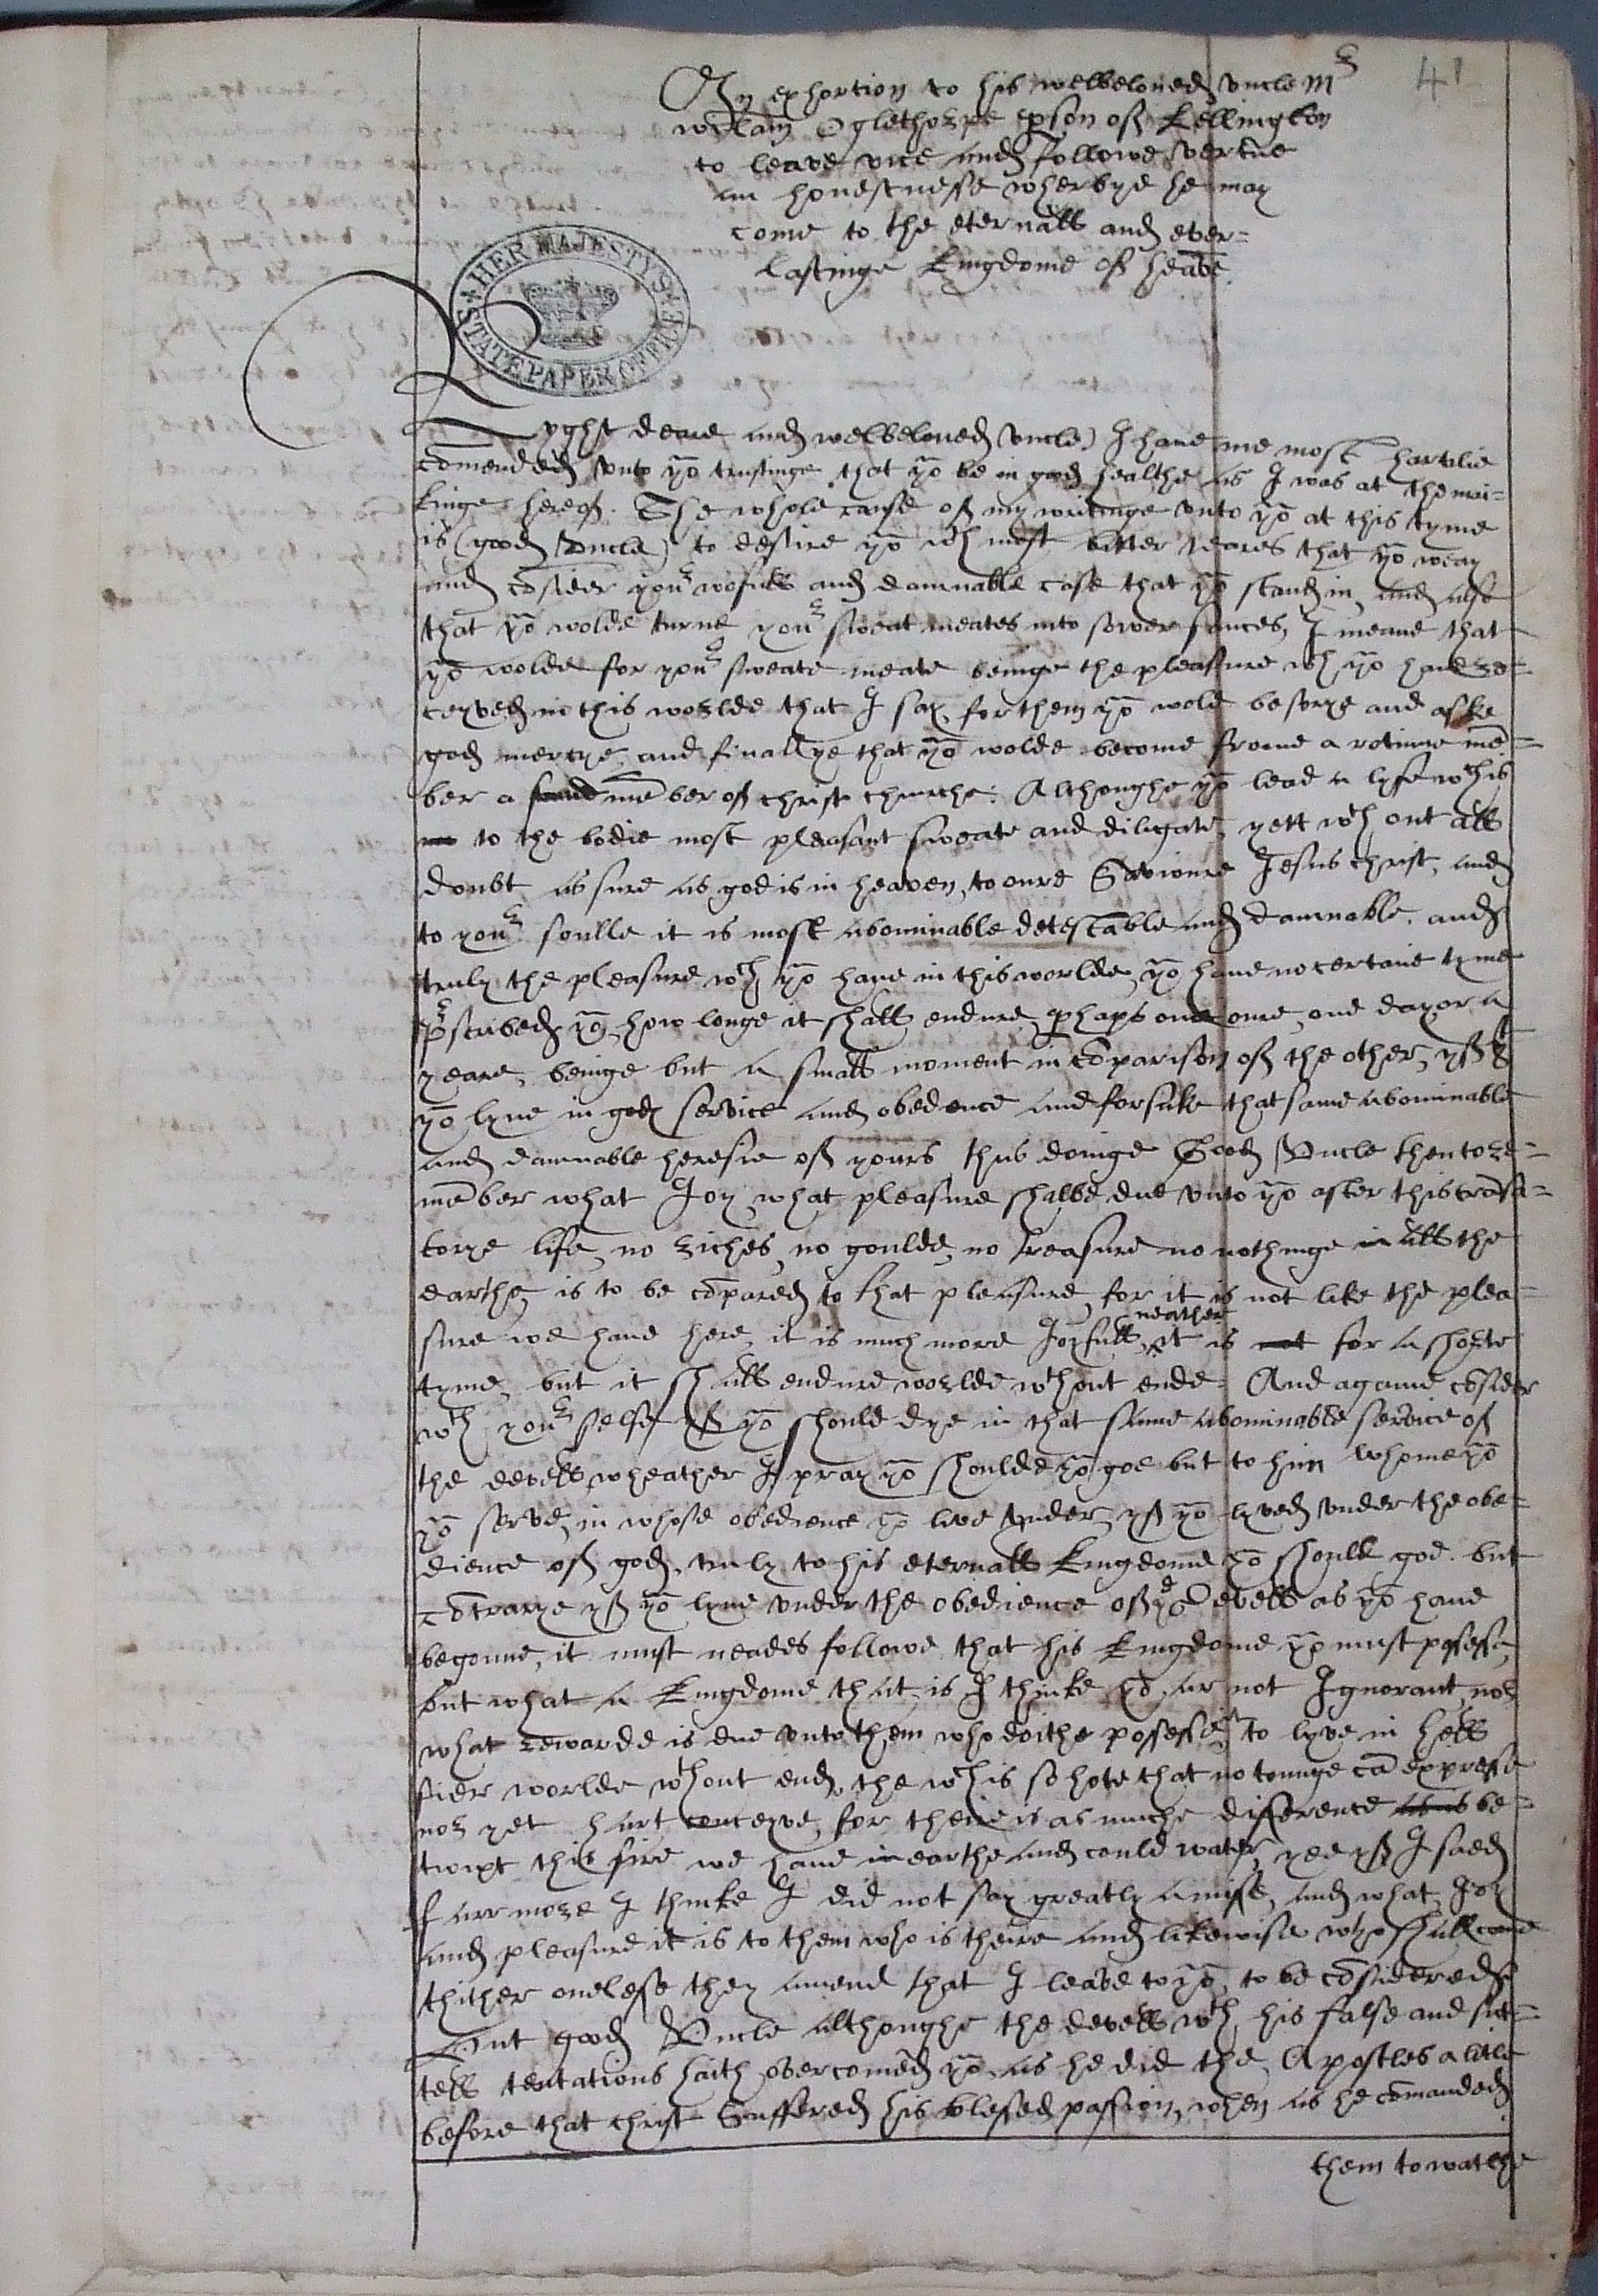 41
An exhortion to his welbeloued Vncle Mr
Willam Oglethorpe epson off Kellington
to leave vice and followe vertue
an honestnesse wherbye he may
come to the eternall and ever=
lastinge kingdome off heavē.
HER MAJESTY'S STATE PAPER OFFICE
Ryght deare and welbeloued Vncle) I have me most hartelie
cōmended vnto yō trustinge that yō be in good healthe as I was at the mai=
kinge hereoff. The whole cause off my writinge vnto yō at this tyme
is (good Vncle) to desire yō wth most bitter teares that yō way
and cōsider your wofull and damnable case that yō stand in, and
that yō wolde turne your sweat meates into sower sauces, I meane that
yō wolde for your sweate meate beinge the pleassure wch yō have re=
ceyved in this worlde that I say for them yō wold be sorye and aske
god mercye, and finallye that yō wolde become frome a rotinne mē=
ber a sound mēber off christ churche. Althoughe yō lead a lyfe wch is
to the bodie most pleasant sweate and diligate, yett wth out all
doubt as sure as god is in heaven, to oure Savioure Jesus christ, and
to your soulle it is most abominable detestable and damnable. and
truly the pleasure wch yō have in this worlde, yō have no certaine tyme
prscribed yō how longe it shall endure, phaps one oure, one day or a
yeare, beinge but a small moment in cōparison off the other, yff
yō lyue in god service and obedence and forsake that same abominable
and damnable heresie off yours thus doinge Good Vncle then to re=
mēber what Ioy what pleasure shalbe due vnto yō after this trāsi=
torye life, no riches, no goulde, no treasure no nothinge in all the
earthe is to be cōpared to that pleasure, for it is not like the plea=
sure we have here, it is much more Joyfull, neather it is not for a shorte
tyme, but it shall endure worlde wthout ende. And againe cōsider
wth your selfe yff yō should dye in that same abominable service off
the devell, wheather I pray yō shoulde yō goe but to him whome yō
yō serve, in whose obedience yō live vnder, yff yō lyved vnder the obe=
dience off god, truly to his eternall kingdome yō shoulld goe. but
cōtrarye yff yō lyue vnder the obedience off ye Devell as yō have
begonne, it must neades followe that his kingdome yō must posesse,
but what a kingdome that is I thinke yō ar not Ignorant, nor
what rewarde is due vnto them who doithe possesse it to lyve in hell
fier worlde wthout end, the wch is so hote that no tounge cā expresse
nor yet hart conceyve, for theire is as muche difference as is be=
twixt this fire we have in earthe and could water, yee yff I saed
farr more I thinke I did not say greatly amisse, and what Joy
and pleasure it is to them who is theire and likewise who shall come
thither onelesse they amend that I leave to yō to be cōsidered
But good Vncle althoughe the devell wth his false and sut=
tell tentations haith overcomed yō as he did the Apostles a litle
before that christ Suffered his blessed passion, when as he cōmanded
them to watche